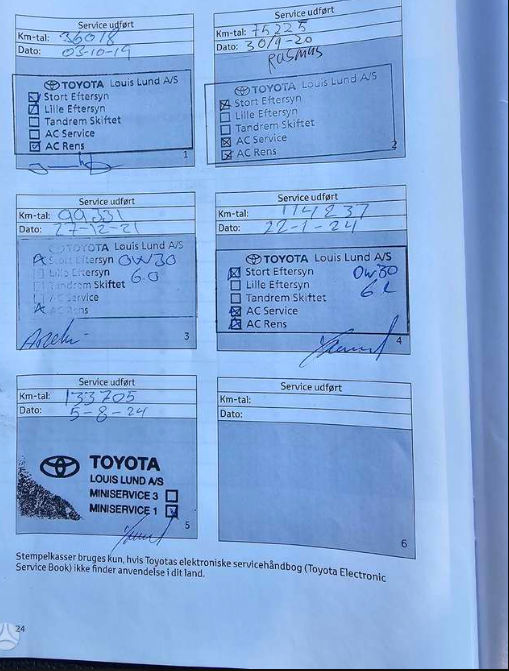 Service udført
Km-tal: 36018
Dato: 03-10-19
TOYOTA Louis Lund A/S
Stort Eftersyn
Lille Eftersyn
Tandrem Skiftet
AC Service
AC Rens
1
Service udført
Km-tal: 75225
Dato: 30/9-20
Rasmus
TOYOTA Louis Lund A/S
Stort Eftersyn
Lille Eftersyn
Tandrem Skiftet
AC Service
AC Rens
2
Service udført
Km-tal: 99331
Dato: 27-12-21
TOYOTA Louis Lund A/S
Stort Eftersyn 0W30
Lille Eftersyn 6.0
Tandrem Skiftet
AC Service
AC Rens
3
Service udført
Km-tal: 114237
Dato: 22-1-24
TOYOTA Louis Lund A/S
Stort Eftersyn 0W30
Lille Eftersyn 6 L
Tandrem Skiftet
AC Service
AC Rens
4
Service udført
Km-tal: 133705
Dato: 5-8-24
TOYOTA
LOUIS LUND A/S
MINISERVICE 3
MINISERVICE 1
5
Service udført
Km-tal:
Dato:
6
Stempelkasser bruges kun, hvis Toyotas elektroniske servicehåndbog (Toyota Electronic
Service Book) ikke finder anvendelse i dit land.
24